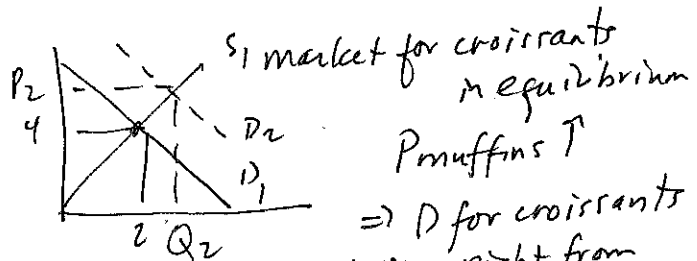 S1 market for croissants
in equilibrium
P2
4
D2
Pmuffins ↑
D1
=> D for croissants
2 Q2
right from